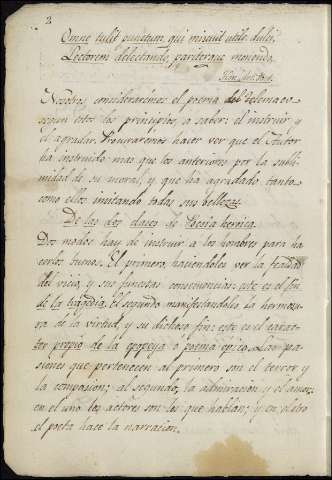 2
Omne tulit punctum, qui miscuit utile dulci,
Lectorem delectando, pariterque monendo.
Nosotros consideraremos el poema del Telemaco
segun estos dos principios, a saber: el instruir y
el agradar. Procuraremos hacer ver que el Autor
ha instruido mas que los anteriores por la subli-
midad de su moral, y que ha agradado tanto
como ellos imitando todas sus bellezas.
De las dos clases de Poesia heroica.
Dos modos hay de instruir a los hombres para ha
cerlos buenos. El primero, haciendoles ver la fealdad
del vicio, y sus funestas consecuencias: este es el fin
de la tragedia: el segundo manifestandoles la hermosu-
ra de la virtud, y su dichoso fin: este es el carac-
ter propio de la epopeya o poema epico. Las pa-
siones que pertenecen al primero son el terror y
la compasion; al segundo, la admiracion y el amor:
en el uno los actores son los que hablan; y en el otro
el poeta hace la narracion.